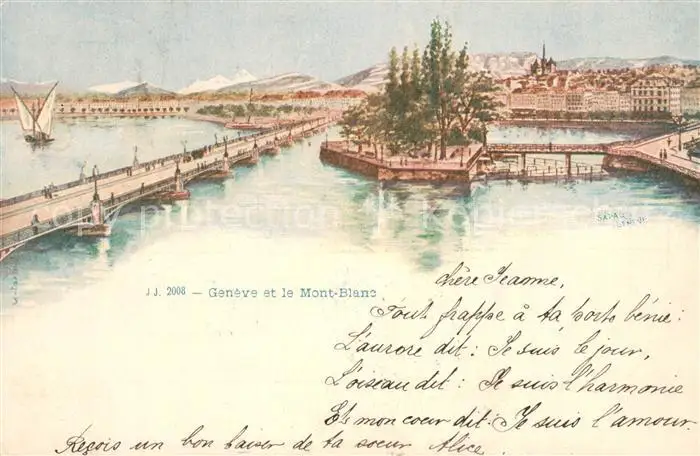 SADAG
GENÈVE
JJ. 2008 — Genève et le Mont-Blanc
chère Jeanne,
Tout frappe à ta porte bénie:
L'aurore dit: Je suis le jour,
L'oiseau dit: Je suis l'harmonie
Et mon coeur dit: Je suis l'amour.
Reçois un bon baiser de ta soeur Alice.